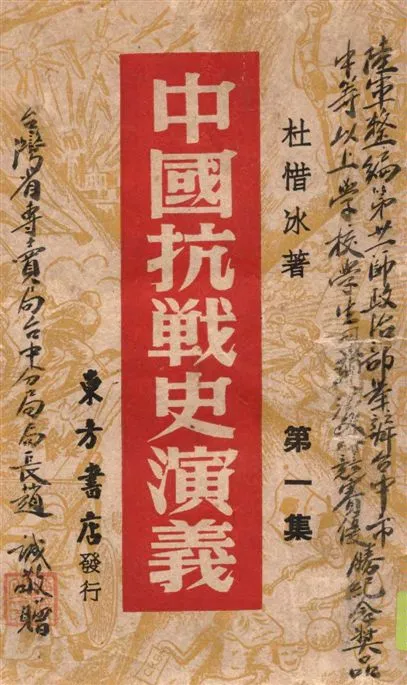 陸軍整編第廿一師政治部舉辦台中市
中等以上學校學生優勝紀念奬品
杜惜冰著
第一集
中國抗戦史演義
東方書店發行
台灣省專賣局台中分局局長趙 誠敬贈